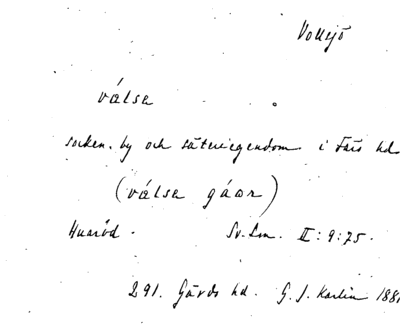 Vollsjö
válsa
socken. by och säteriegendom i Färs hd
(válsa gáor)
Huaröd.
Sv. Lm. II:9:75.
291. Gärds hd. G. J. Karlin 188